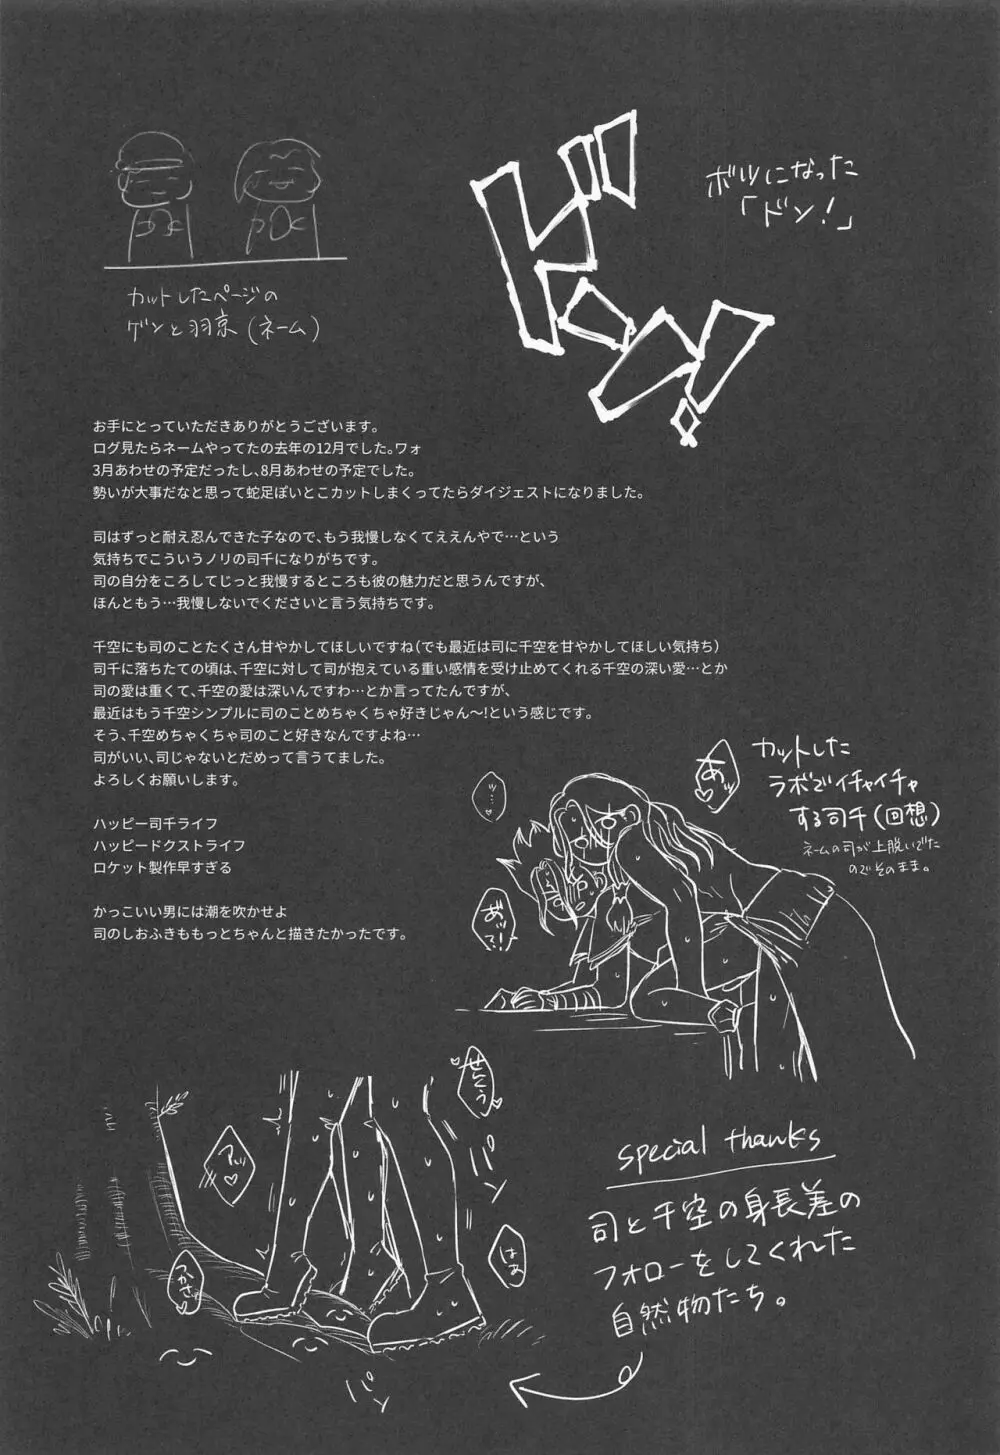 ボツになった
「ドン!」
ドン!
カットしたページの
ゲンと羽京(ネーム)
お手にとっていただきありがとうございます。
ログ見たらネームやってたの去年の12月でした。ワォ
3月あわせの予定だったし、8月あわせの予定でした。
勢いが大事だなと思って蛇足ぽいとこカットしまくってたらダイジェストになりました。
司はずっと耐え忍んできた子なので、もう我慢しなくてええんやで…という
気持ちでこういうノリの司千になりがちです。
司の自分をころしてじっと我慢するところも彼の魅力だと思うんですが、
ほんともう…我慢しないでくださいと言う気持ちです。
千空にも司のことたくさん甘やかしてほしいですね(でも最近は司に千空を甘やかしてほしい気持ち)
司千に落ちたての頃は、千空に対して司が抱えている重い感情を受け止めてくれる千空の深い愛…とか
司の愛は重くて、千空の愛は深いんですわ…とか言ってたんですが、
最近はもう千空シンプルに司のことめちゃくちゃ好きじゃん〜!という感じです。
そう、千空めちゃくちゃ司のこと好きなんですよね…
司がいい、司じゃないとだめって言うてました。
よろしくお願いします。
ハッピー司千ライフ
ハッピードクストライフ
ロケット製作早すぎる
かっこいい男には潮を吹かせよ
司のしおふきももっとちゃんと描きたかったです。
カットした
ラボでイチャイチャ
する司千(回想)
ネームの司が上脱いでた
のでそのまま。
あッ♡
ッ…♡
あッ
で!
せんくう
アッ♡
パン
はぁ
つかさ♡
パン
special thanks
司と千空の身長差の
フォローをしてくれた
自然物たち。